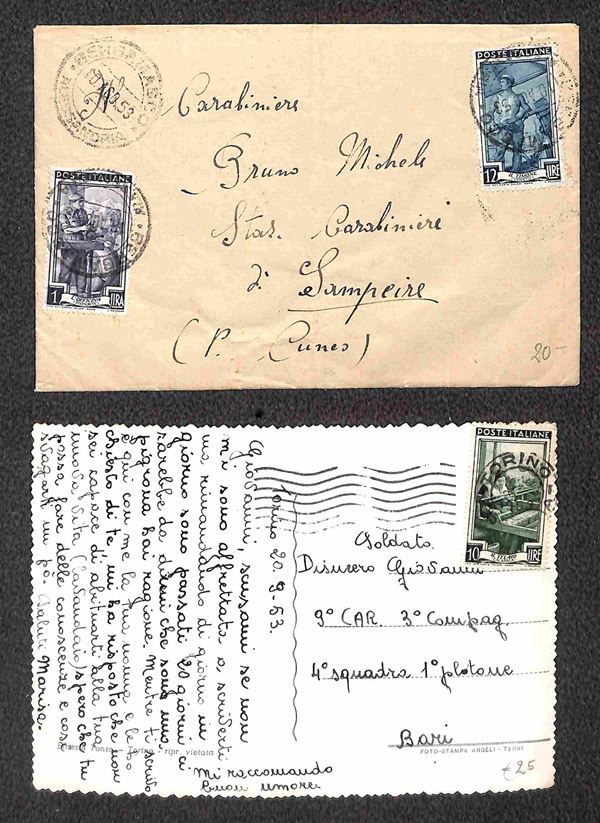 POSTE ITALIANE
12 LIRE
POSTE ITALIANE
1 LIRA
Carabiniere
Bruno Michele
Staz. Carabinieri
di Sampeire
(P. Cuneo)
20-
POSTE ITALIANE
10 LIRE
TORINO
Torino 20-9-53.
Giovanni, scusami se non
mi sono affrettata a scriverti
ma rimandando di giorno in
giorno sono passati 20 giorni, ci
sarebbe da darmi che sono una
pigrona hai ragione. Mentre ti scrivo
è qui con me la tua nonna e le ho
chiesto di te mi ha risposto che non
sei capace di abituarti alla tua
nuova vita spero che tu
possa fare delle conoscenze e così
svagarti un pò. Saluti Marisa.
Mi raccomando
buon umore.
Soldato
Disucero Giovanni
9° CAR. 3° Compag.
4° squadra 1° plotone
Bari
Torino - ripr. vietata
FOTO-STAMPA ANGELI - TERNI
€25